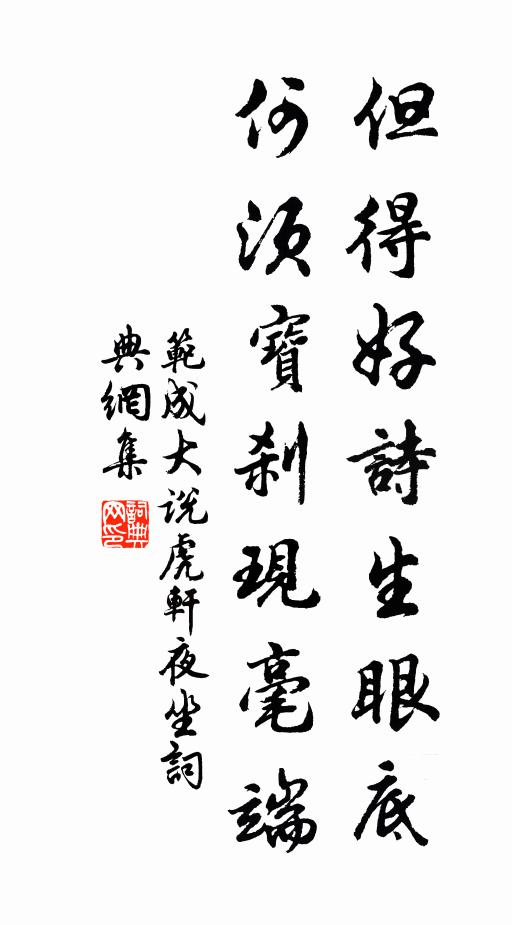 但得好詩生眼底
何須寶刹現毫端
範成大说虎軒夜坐詞
典網集
詞典网印